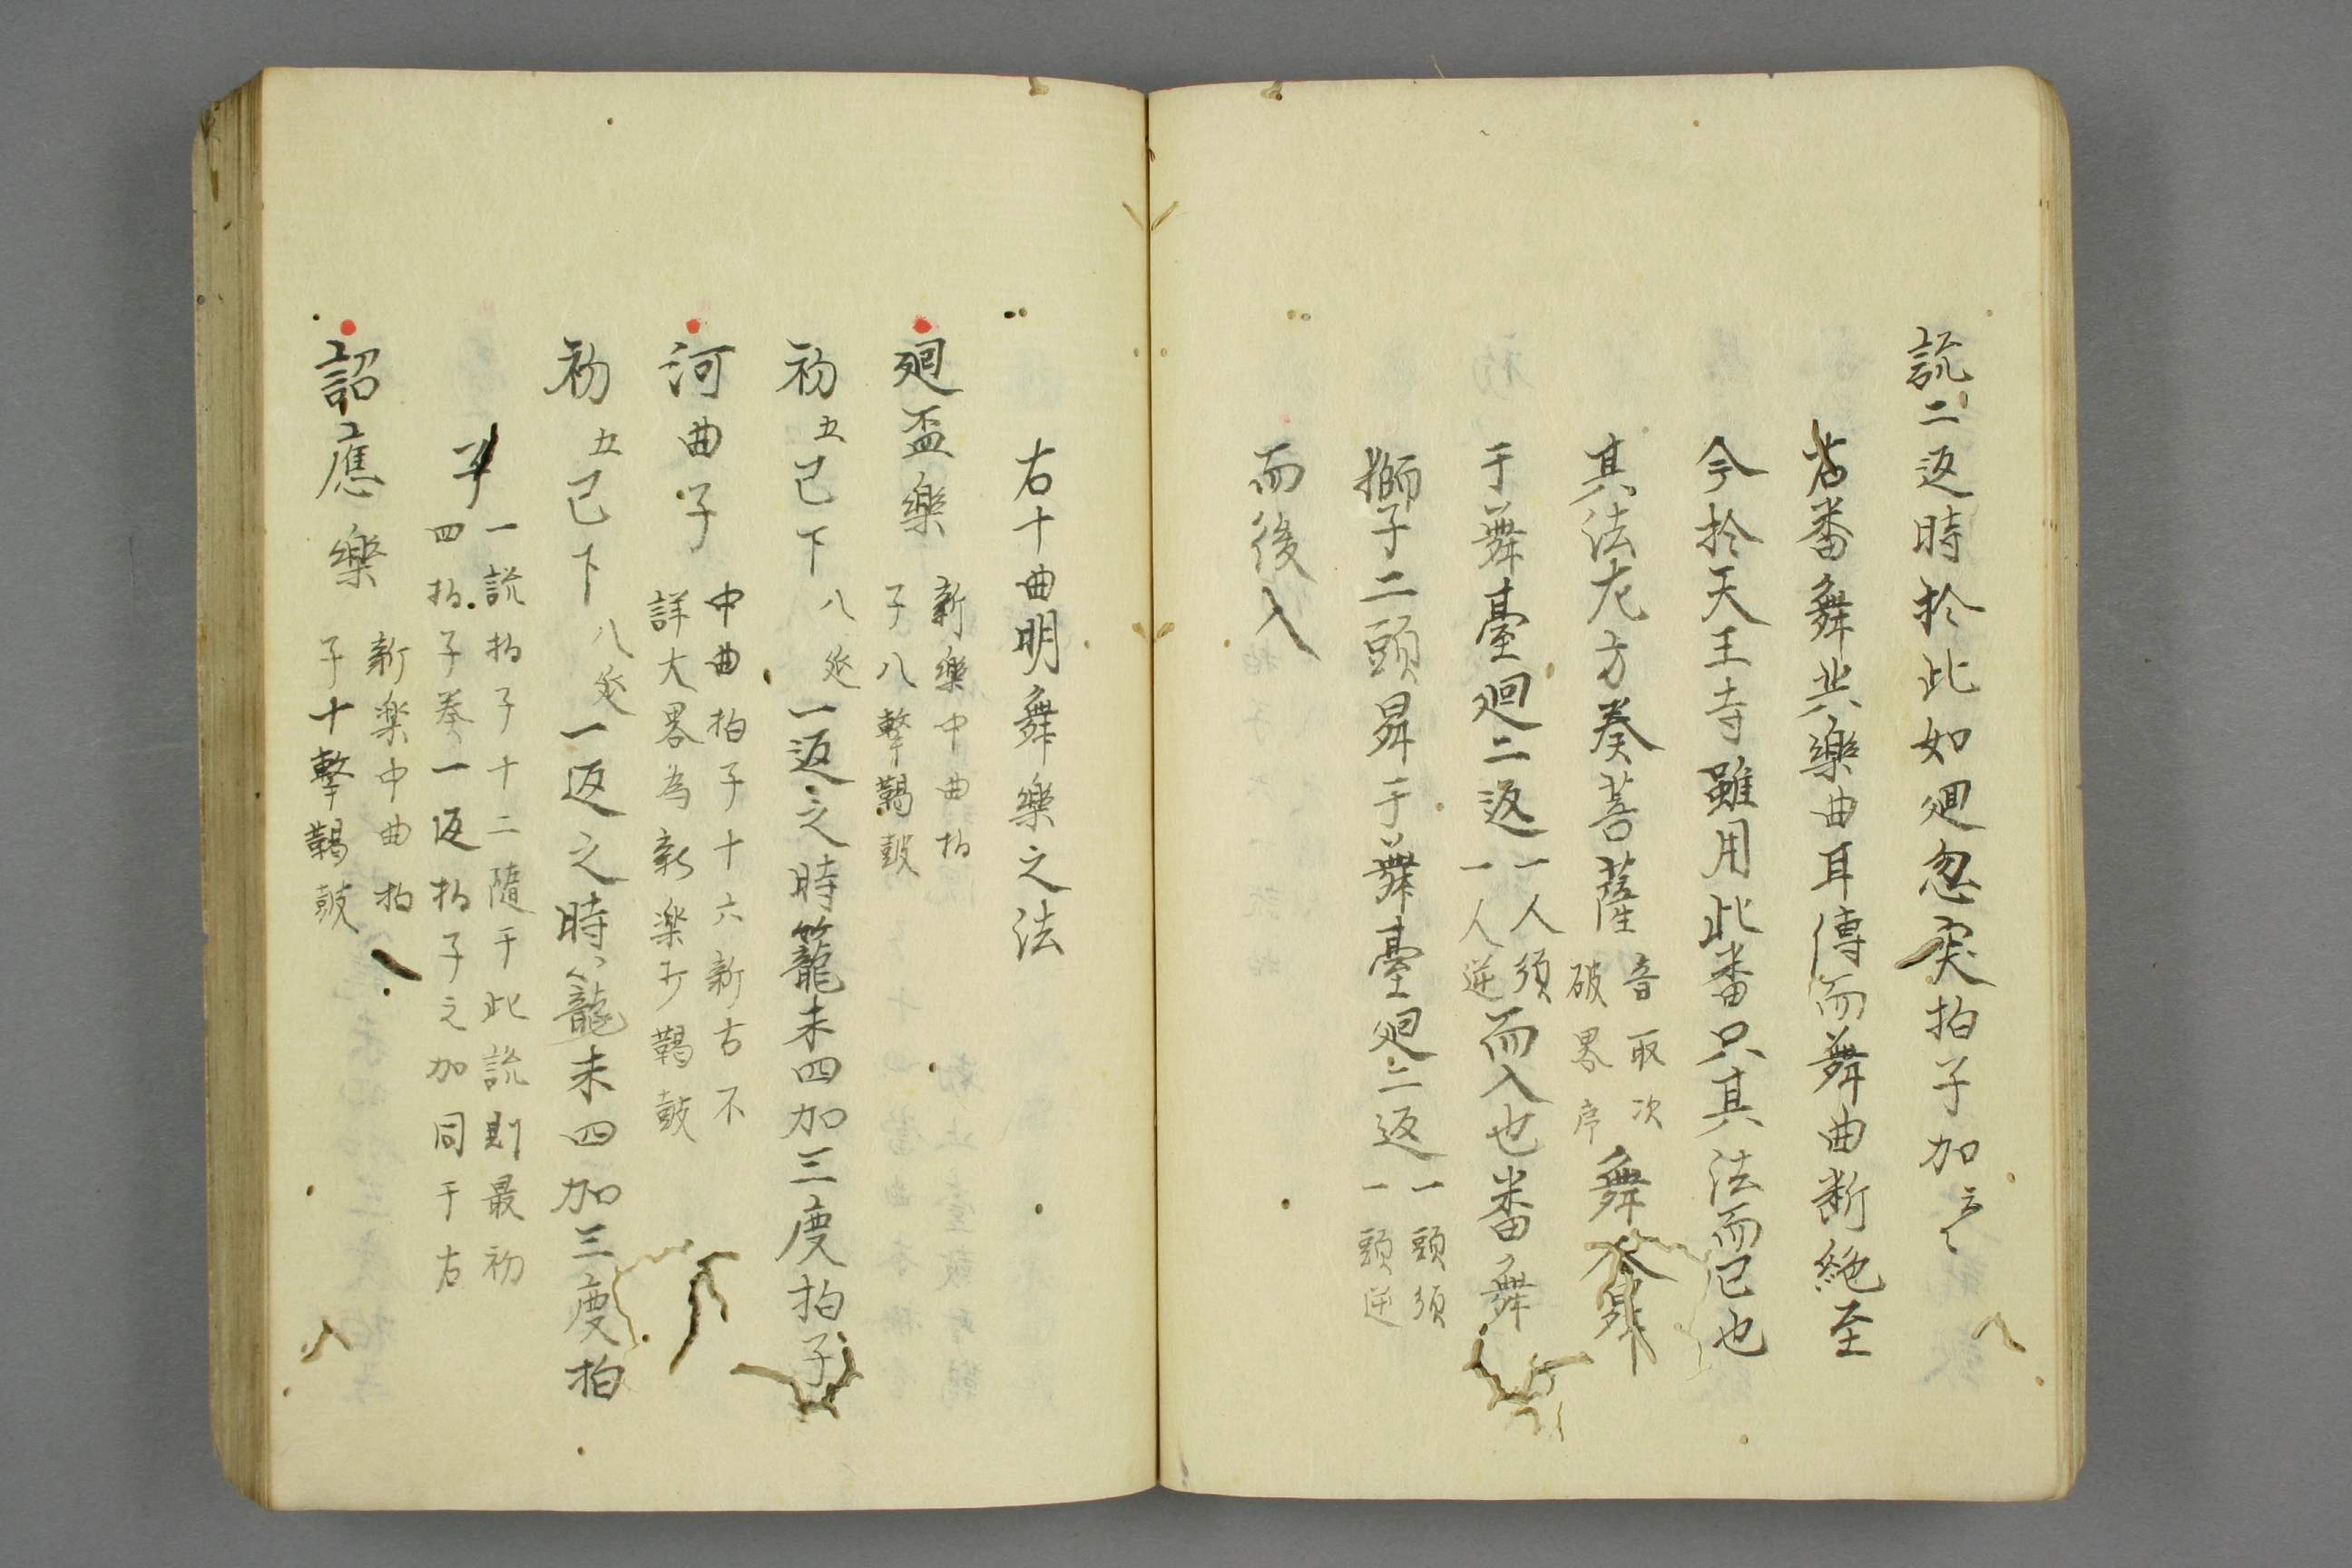 説二返時於此如廻忽突拍子加云々
右番舞共樂曲耳傳而舞曲断絶至
今於天王寺雖用此番只其法而已也
其法左方奏菩薩
音取次
破畧序
舞人昇
于舞臺廻二返
一人須
一人逆
而入也番舞
獅子二頭昇于舞臺廻二返
一頭須
一頭逆
而後入
右十曲明舞樂之法
廻盃樂
新樂中曲拍
子八撃鞨鼓
初五已下八㐧一返之時籠未四加三度拍子
河曲子
中曲拍子十六新古不
詳大畧為新楽打鞨鼓
初五已下八㐧一返之時籠未四加三度拍
子
一説拍子十二隨于此説則最初
四拍子奏一返拍子之加同于右
詔應樂
新楽中曲拍
子十撃鞨鼓